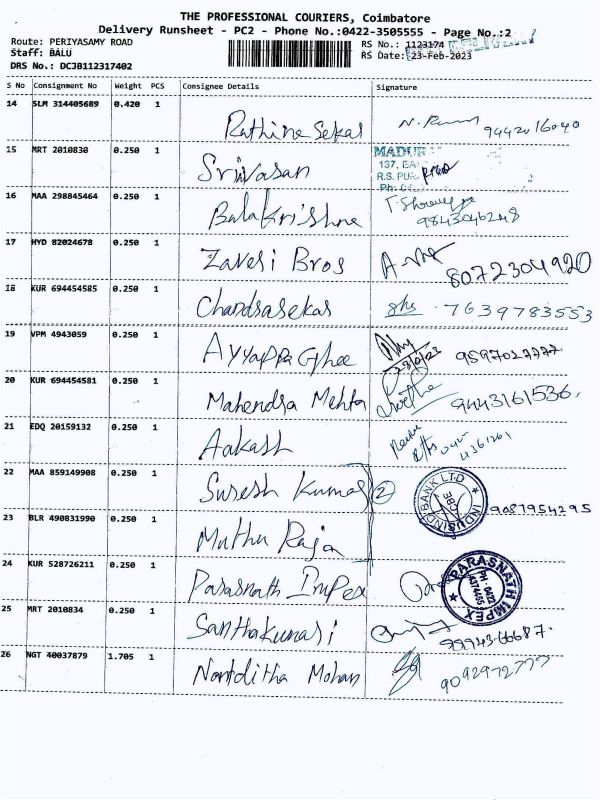 THE PROFESSIONAL COURIERS, Coimbatore
Delivery Runsheet - PC2 - Phone No.:0422-3505555 - Page No.:2
Route: PERIYASAMY ROAD RS No.: 1123174
Staff: BALU RS Date: 23-Feb-2023
DRS No.: DCJB112317402
S No Consignment No Weight PCS Consignee Details Signature
14 SLM 314405689 0.420 1 Rathine Sekar 9442016040
15 MRT 2010830 0.250 1 Srivasan MADUR
137,
R.S. PUR
Ph:
16 MAA 298845464 0.250 1 Balakrishne 9843046248
17 HYD 82024678 0.250 1 Zaveri Bros 8072304920
18 KUR 694454585 0.250 1 Chandrasekar 7639783553
19 VPM 4943059 0.250 1 Ayyappa Ghee 9597027777
20 KUR 694454581 0.250 1 Mahendra Mehta 9443161536.
21 EDQ 20159132 0.250 1 Aakash
22 MAA 859149908 0.250 1 Suresh Kumar 2 INDUSIND BANK LTD CBE 9087954295
23 BLR 490831990 0.250 1 Muthu Raja
24 KUR 528726211 0.250 1 Parasnath Impex PARASNATH IMPEX PH : 0422
25 MRT 2010834 0.250 1 Santhakumari 99943-66687.
26 NGT 40037879 1.705 1 Nanditha Mohan 9092972777